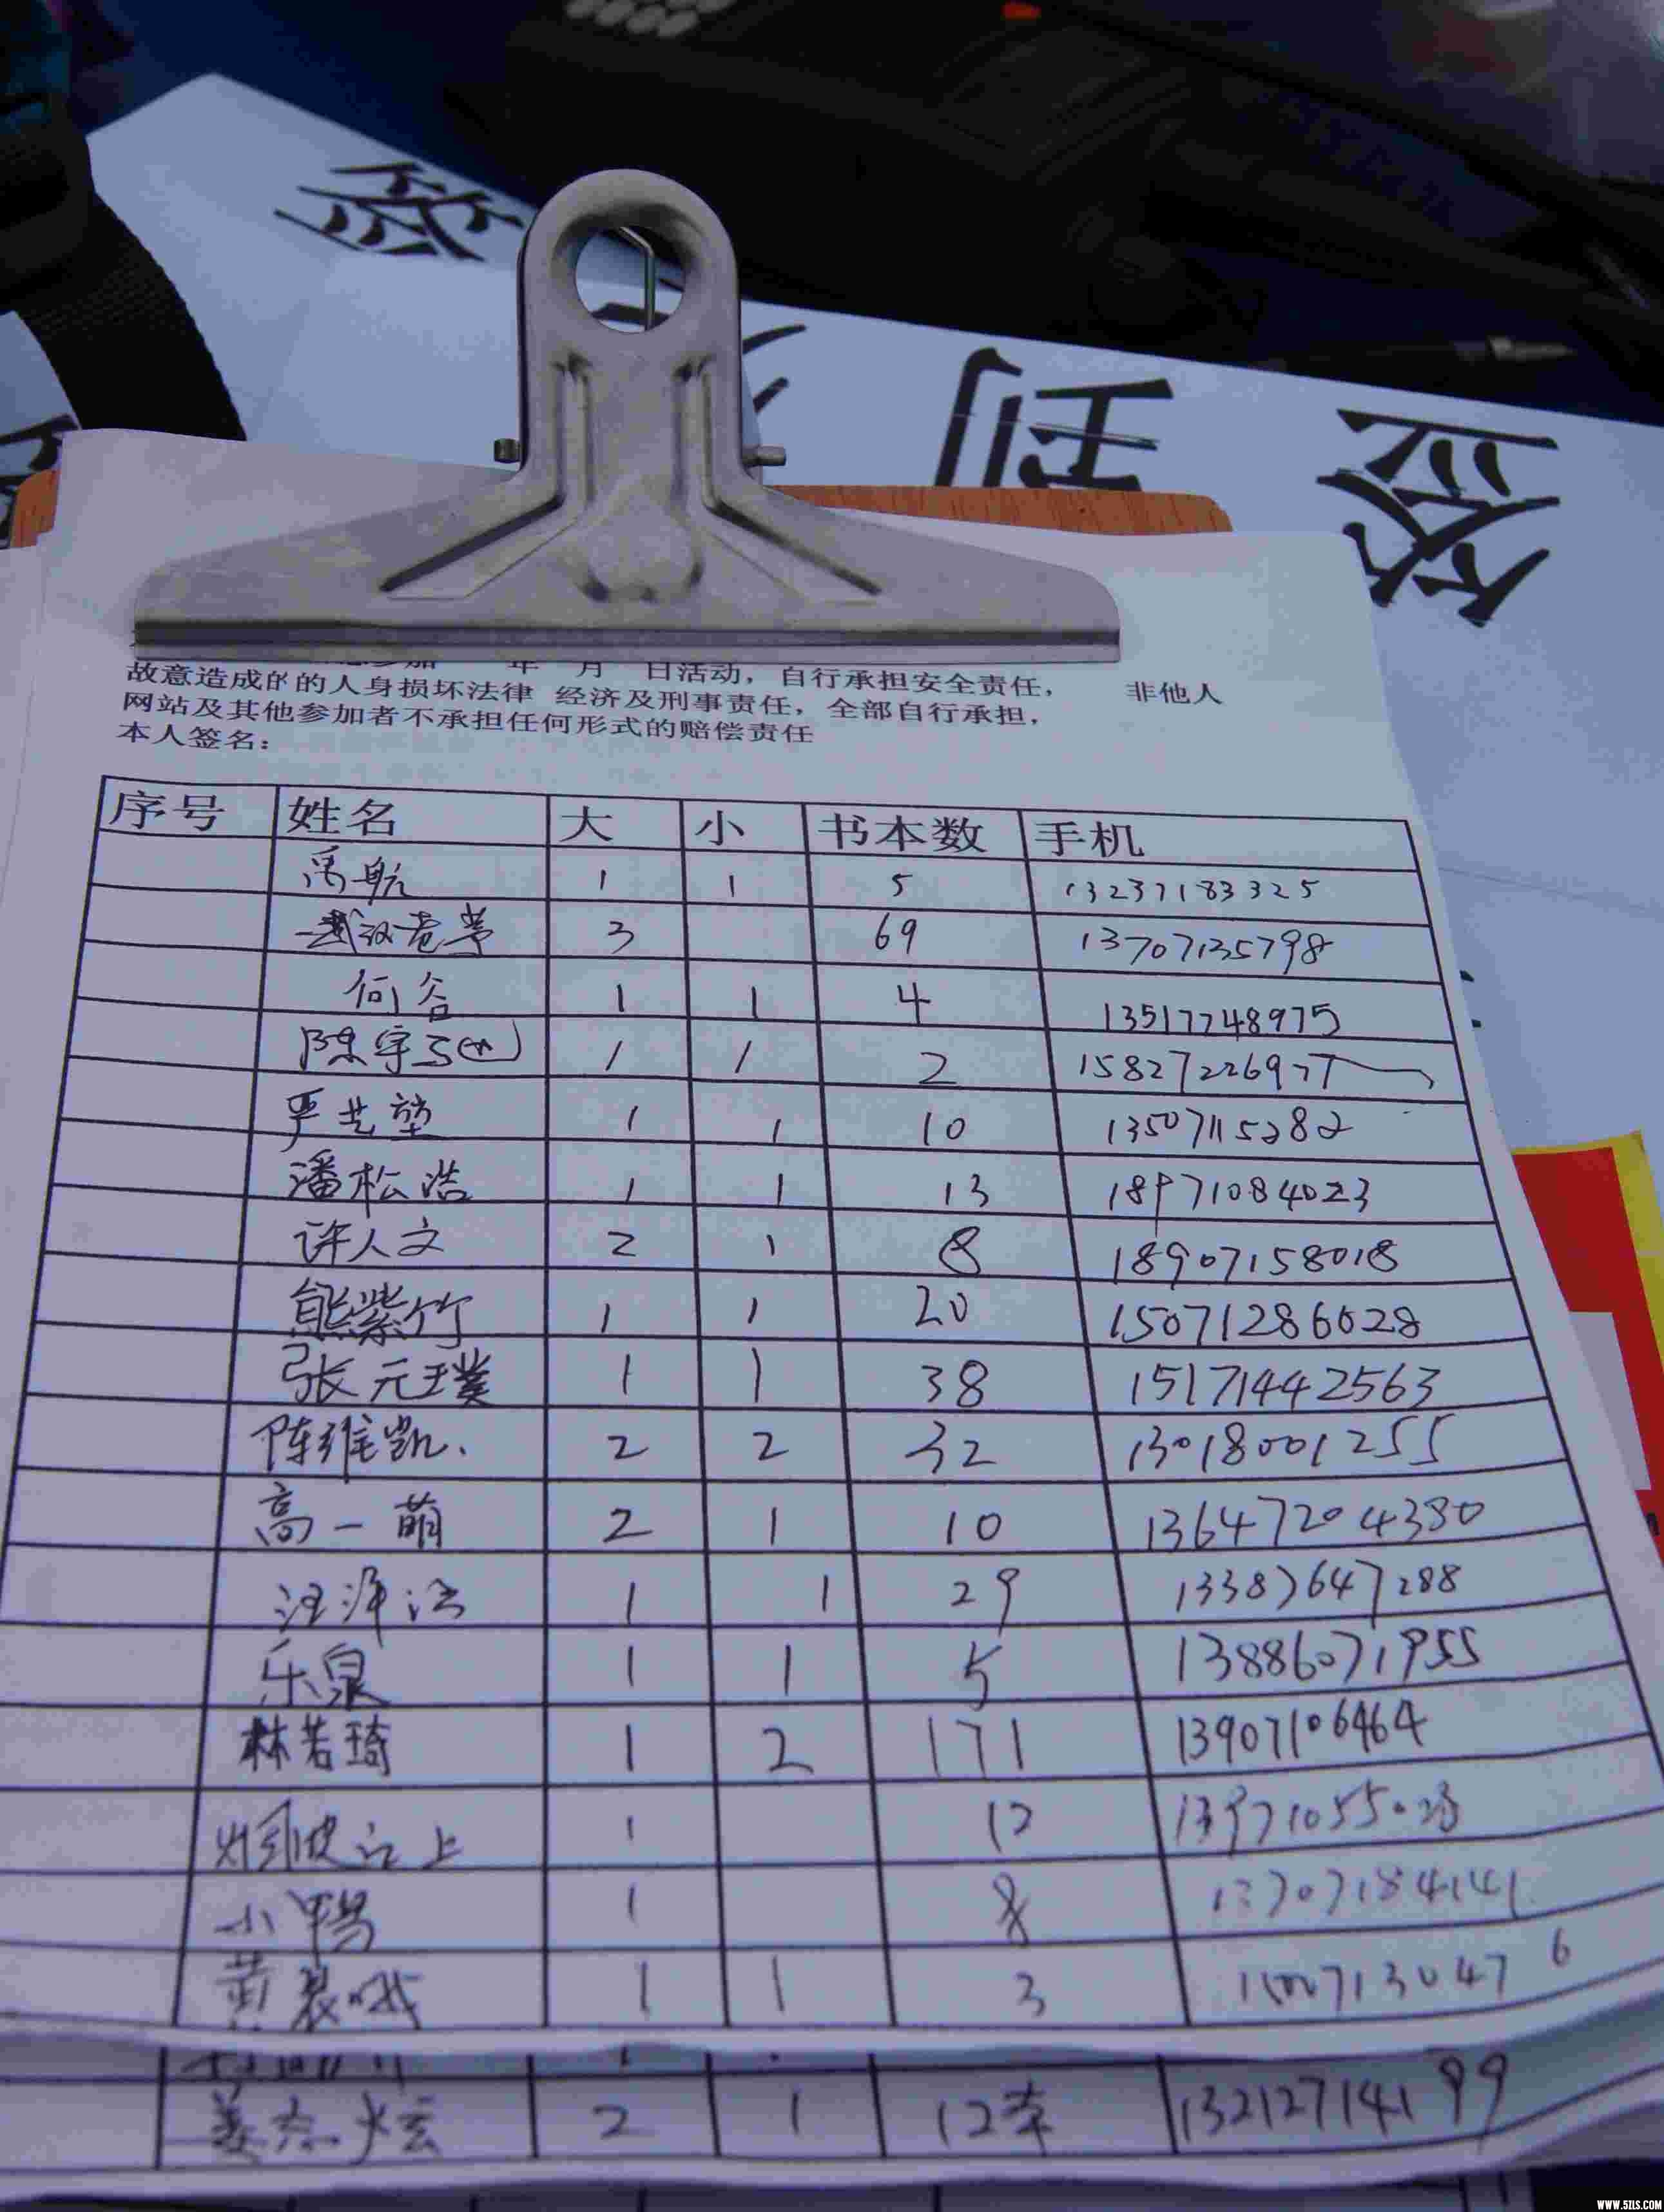 签
到
签
年 月 日活动，自行承担安全责任， 非他人
故意造成的的人身损坏法律 经济及刑事责任，全部自行承担，
网站及其他参加者不承担任何形式的赔偿责任
本人签名：
序号 姓名 大 小 书本数 手机
禹航 1 1 5 13237183325
3 69 13707135798
何谷 1 1 4 13517748975
陈宇 1 1 2 15827226977
严艺堃 1 1 10 13507115282
潘松浩 1 1 13 18971084023
许人文 2 1 8 18907158018
熊紫竹 1 1 20 15071286028
张元璞 1 1 38 15171442563
陈维凯. 2 2 32 13018001255
高一萌 2 1 10 13647204380
汪泽洁 1 1 29 13387647288
乐泉 1 1 5 13886071955
林若琦 1 2 171 13907106464
上 1 12
小鸭 1 8 13707184141
黄 1 1 3
姜 2 1 12本 13212714199
WWW.51LS.COM